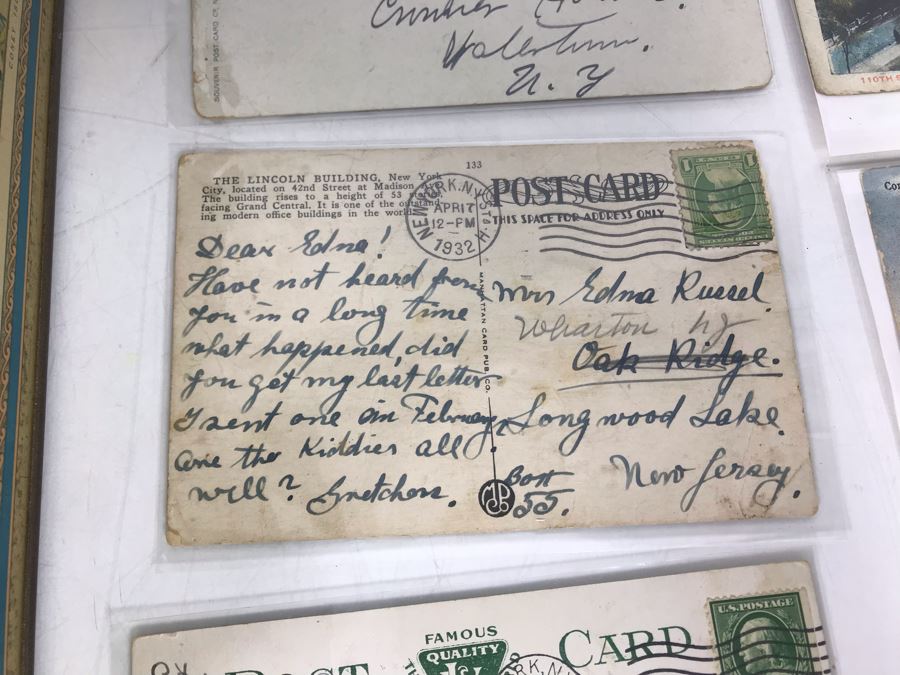 SOUVENIR POST CARD CO.
N. Y
110TH S
133
THE LINCOLN BUILDING, New York
City, located on 42nd Street at Madison Ave.
The building rises to a height of 53 stories,
facing Grand Central. It is one of the outstand-
ing modern office buildings in the world.
NEW YORK, N.Y.
APR 17
12-PM
1932
POST CARD
THIS SPACE FOR ADDRESS ONLY
1
Dear Edna!
Have not heard from
you in a long time
what happened, did
you get my last letter
I sent one in February,
are the Kiddies all
well? Gretchen.
MANHATTAN CARD PUB. CO.
Mrs Edna Russel.
Wharton NJ
Oak Ridge.
Longwood Lake.
New Jersey.
Box
55.
FAMOUS
QUALITY
POST CARD
U.S. POSTAGE